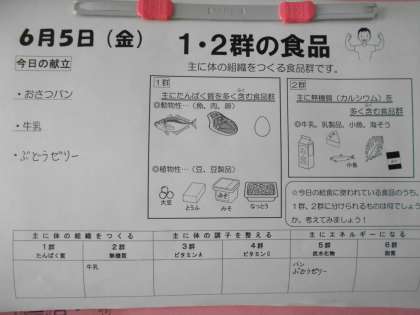 6月5日（金）
1・2群の食品
主に体の組織をつくる食品群です。
今日の献立
・おさつパン
・牛乳
・ぶどうゼリー
1群
主にたんぱく質を多く含む食品群
◎動物性…（魚、肉、卵）
◎植物性…（豆、豆製品）
大豆
とうふ
みそ
なっとう
2群
主に無機質（カルシウム）を
多く含む食品群
◎牛乳、乳製品、小魚、海そう
小魚
☆今日の給食に使われている食品のうち、
1群、2群に分けられるものは何でしょう
か。考えてみましょう！
主に体の組織をつくる
主に体の調子を整える
主にエネルギーになる
1群
たんぱく質
2群
無機質
3群
ビタミンA
4群
ビタミンC
5群
炭水化物
6群
脂質
牛乳
パン
ぶどうゼリー